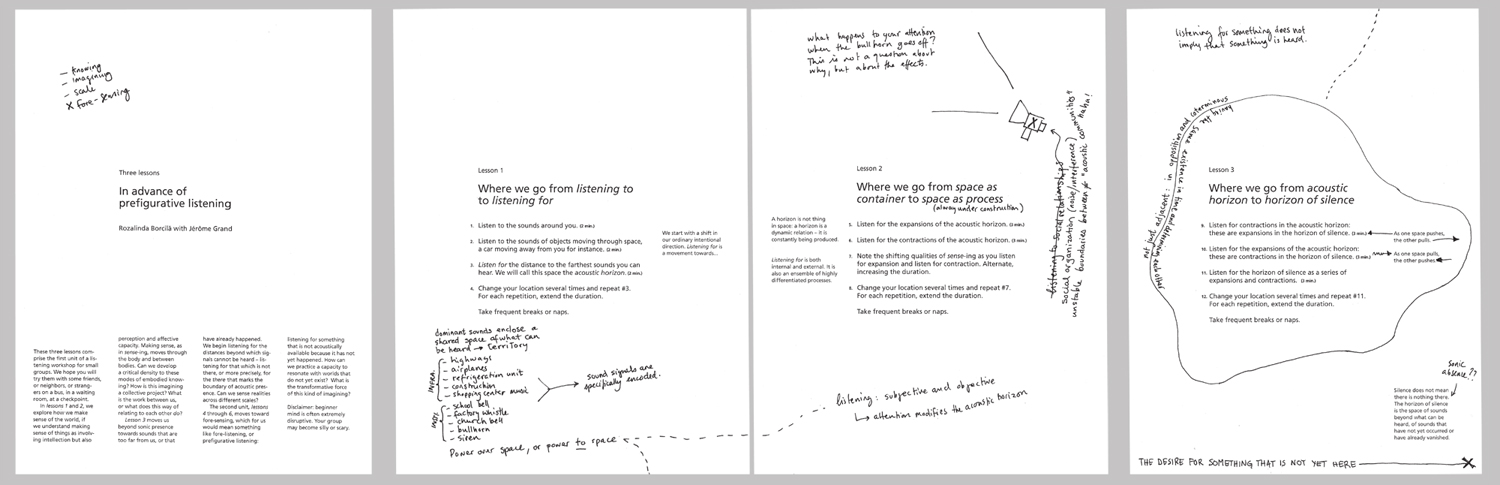 – knowing
– imagining
– scale
X fore-sensing
Three lessons
In advance of
prefigurative listening
Rozalinda Borcilă with Jérôme Grand
These three lessons com-
prise the first unit of a lis-
tening workshop for small
groups. We hope you will
try them with some friends,
or neighbors, or strang-
ers on a bus, in a waiting
room, at a checkpoint.
In lessons 1 and 2, we
explore how we make
sense of the world, if
we understand making
sense of things as involv-
ing intellection but also
perception and affective
capacity. Making sense, as
in sense-ing, moves through
the body and between
bodies. Can we develop
a critical density to these
modes of embodied know-
ing? How is this imagining
a collective project? What
is the work between us,
or what does this way of
relating to each other do?
Lesson 3 moves us
beyond sonic presence
towards sounds that are
too far from us, or that
have already happened.
We begin listening for the
distances beyond which sig-
nals cannot be heard – lis-
tening for that which is not
there, or more precisely, for
the there that marks the
boundary of acoustic pres-
ence. Can we sense realities
across different scales?
The second unit, lessons
4 through 6, moves toward
fore-sensing, which for us
would mean something
like fore-listening, or
prefigurative listening:
listening for something
that is not acoustically
available because it has not
yet happened. How can
we practice a capacity to
resonate with worlds that
do not yet exist? What is
the transformative force
of this kind of imagining?
Disclaimer: beginner
mind is often extremely
disruptive. Your group
may become silly or scary.
Lesson 1
Where we go from listening to
to listening for
1. Listen to the sounds around you. (2 min.)
2. Listen to the sounds of objects moving through space,
a car moving away from you for instance. (2 min.)
3. Listen for the distance to the farthest sounds you can
hear. We will call this space the acoustic horizon. (2 min.)
4. Change your location several times and repeat #3.
For each repetition, extend the duration.
Take frequent breaks or naps.
We start with a shift in
our ordinary intentional
direction. Listening for is
a movement towards...
dominant sounds enclose a
shared space of what can
be heard → territory
INFRA.
– highways
– airplanes
– refrigeration unit
– construction
– shopping center music
– school bell
– factory whistle
– church bell
– bullhorn
– siren
sound signals are
specifically encoded.
Power over space, or power to space
what happens to your attention
when the bullhorn goes off?
This is not a question about
why, but about the effects.
X
Lesson 2
Where we go from space as
container to space as process
(always under construction)
A horizon is not thing
in space: a horizon is a
dynamic relation – it is
constantly being produced.
Listening for is both
internal and external. It is
also an ensemble of highly
differentiated processes.
5. Listen for the expansions of the acoustic horizon. (2 min.)
6. Listen for the contractions of the acoustic horizon. (2 min.)
7. Note the shifting qualities of sense-ing as you listen
for expansion and listen for contraction. Alternate,
increasing the duration.
8. Change your location several times and repeat #7.
For each repetition, extend the duration.
Take frequent breaks or naps.
listening to social relationships
social organization (noise/interference)
unstable boundaries between "acoustic communities"
haha!
listening: subjective and objective
↳ attention modifies the acoustic horizon
listening for something does not
imply that something is heard.
not just adjacent: in opposition and coterminous
having the same existence in time and determining each other
Lesson 3
Where we go from acoustic
horizon to horizon of silence
9. Listen for contractions in the acoustic horizon:
these are expansions in the horizon of silence. (3 min.)
10. Listen for the expansions of the acoustic horizon:
these are contractions in the horizon of silence. (3 min.)
11. Listen for the horizon of silence as a series of
expansions and contractions. (3 min.)
12. Change your location several times and repeat #11.
For each repetition, extend the duration.
Take frequent breaks or naps.
As one space pushes,
the other pulls.
As one space pulls,
the other pushes.
sonic
absence??
Silence does not mean
there is nothing there.
The horizon of silence
is the space of sounds
beyond what can be
heard, of sounds that
have not yet occurred or
have already vanished.
THE DESIRE FOR SOMETHING THAT IS NOT YET HERE